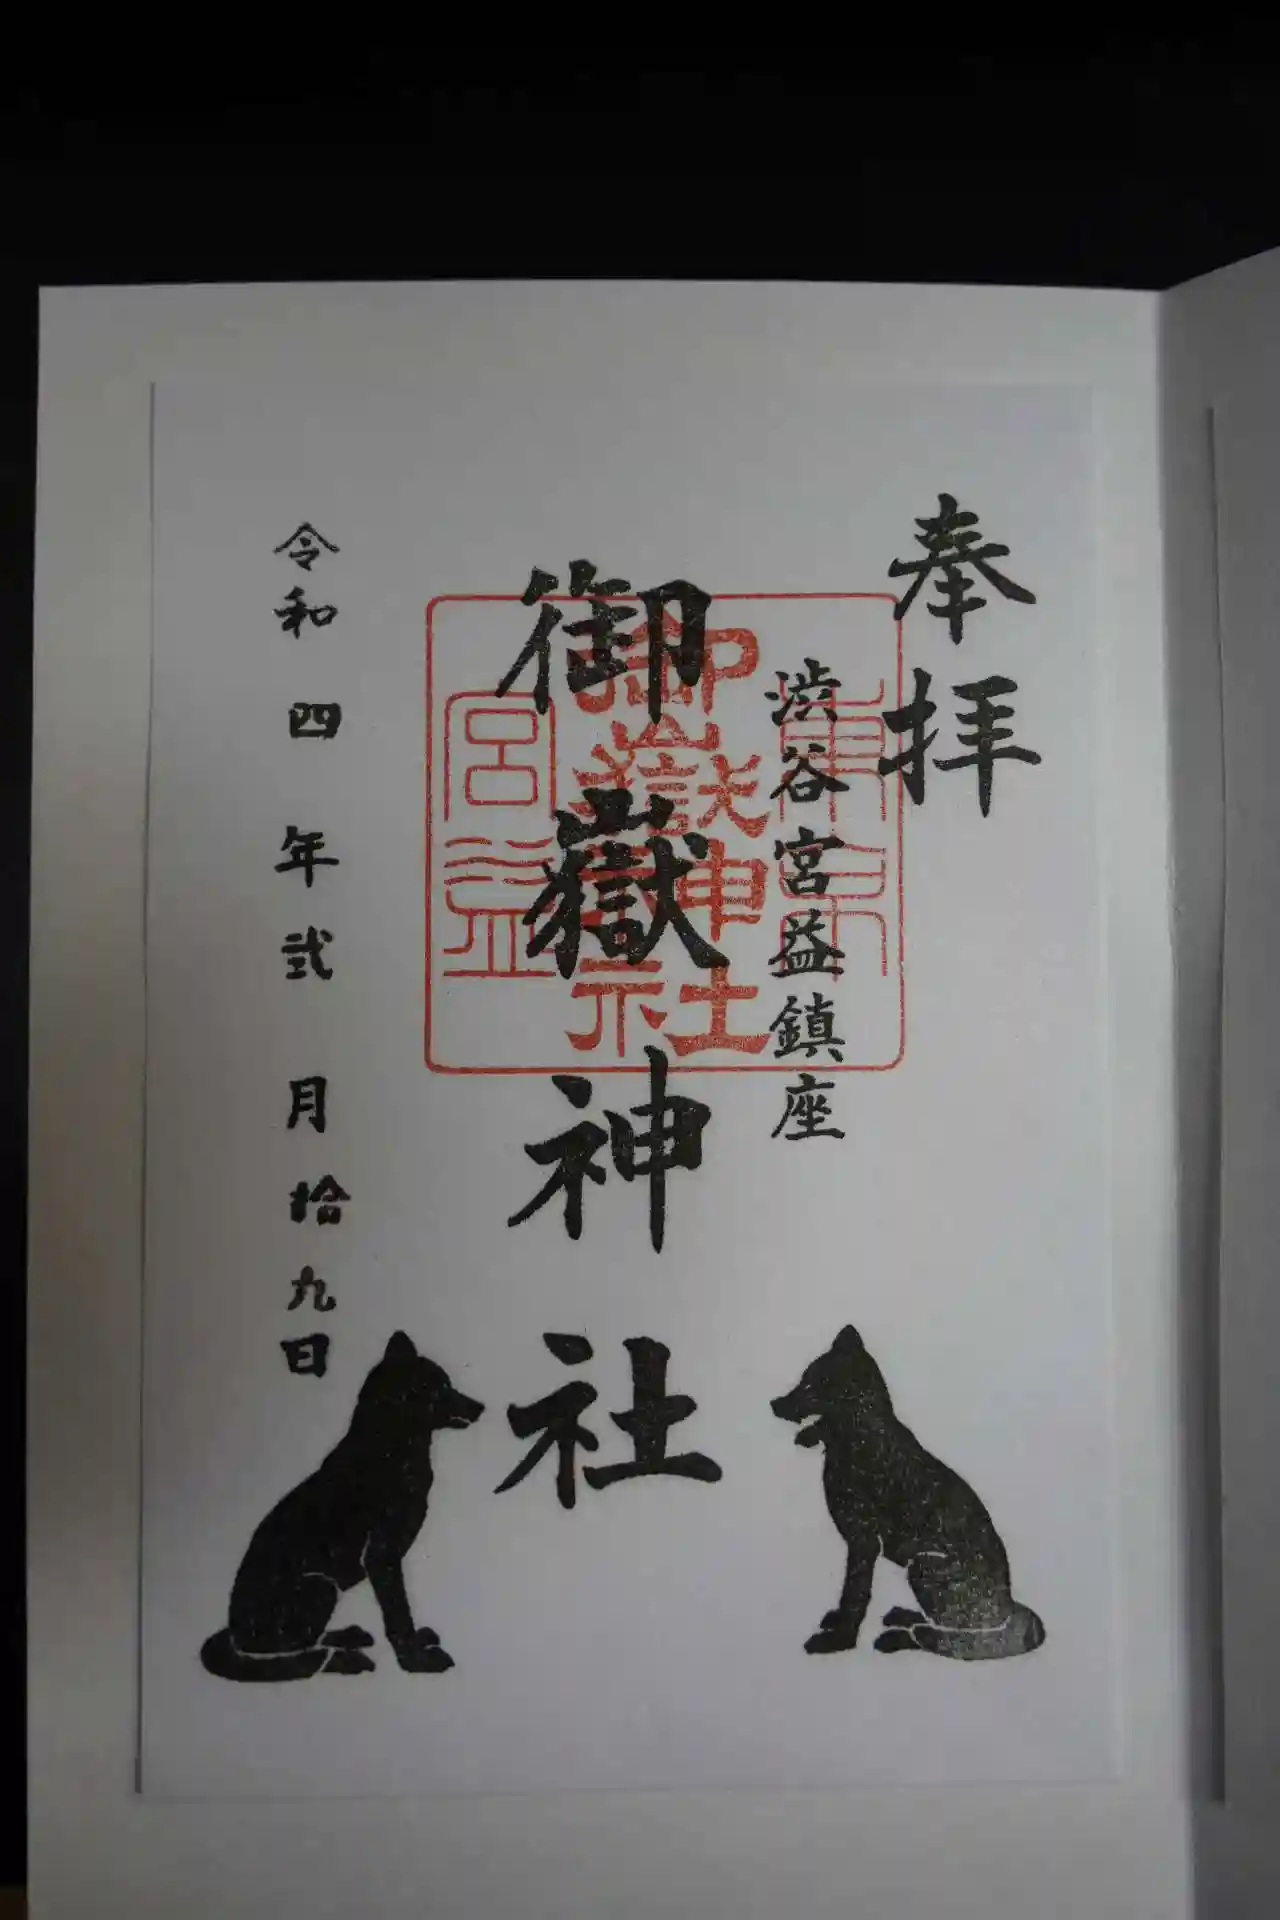 奉拝
渋谷宮益鎮座
御嶽神社
東京
御嶽神社
宮益
令和四年弐月拾九日